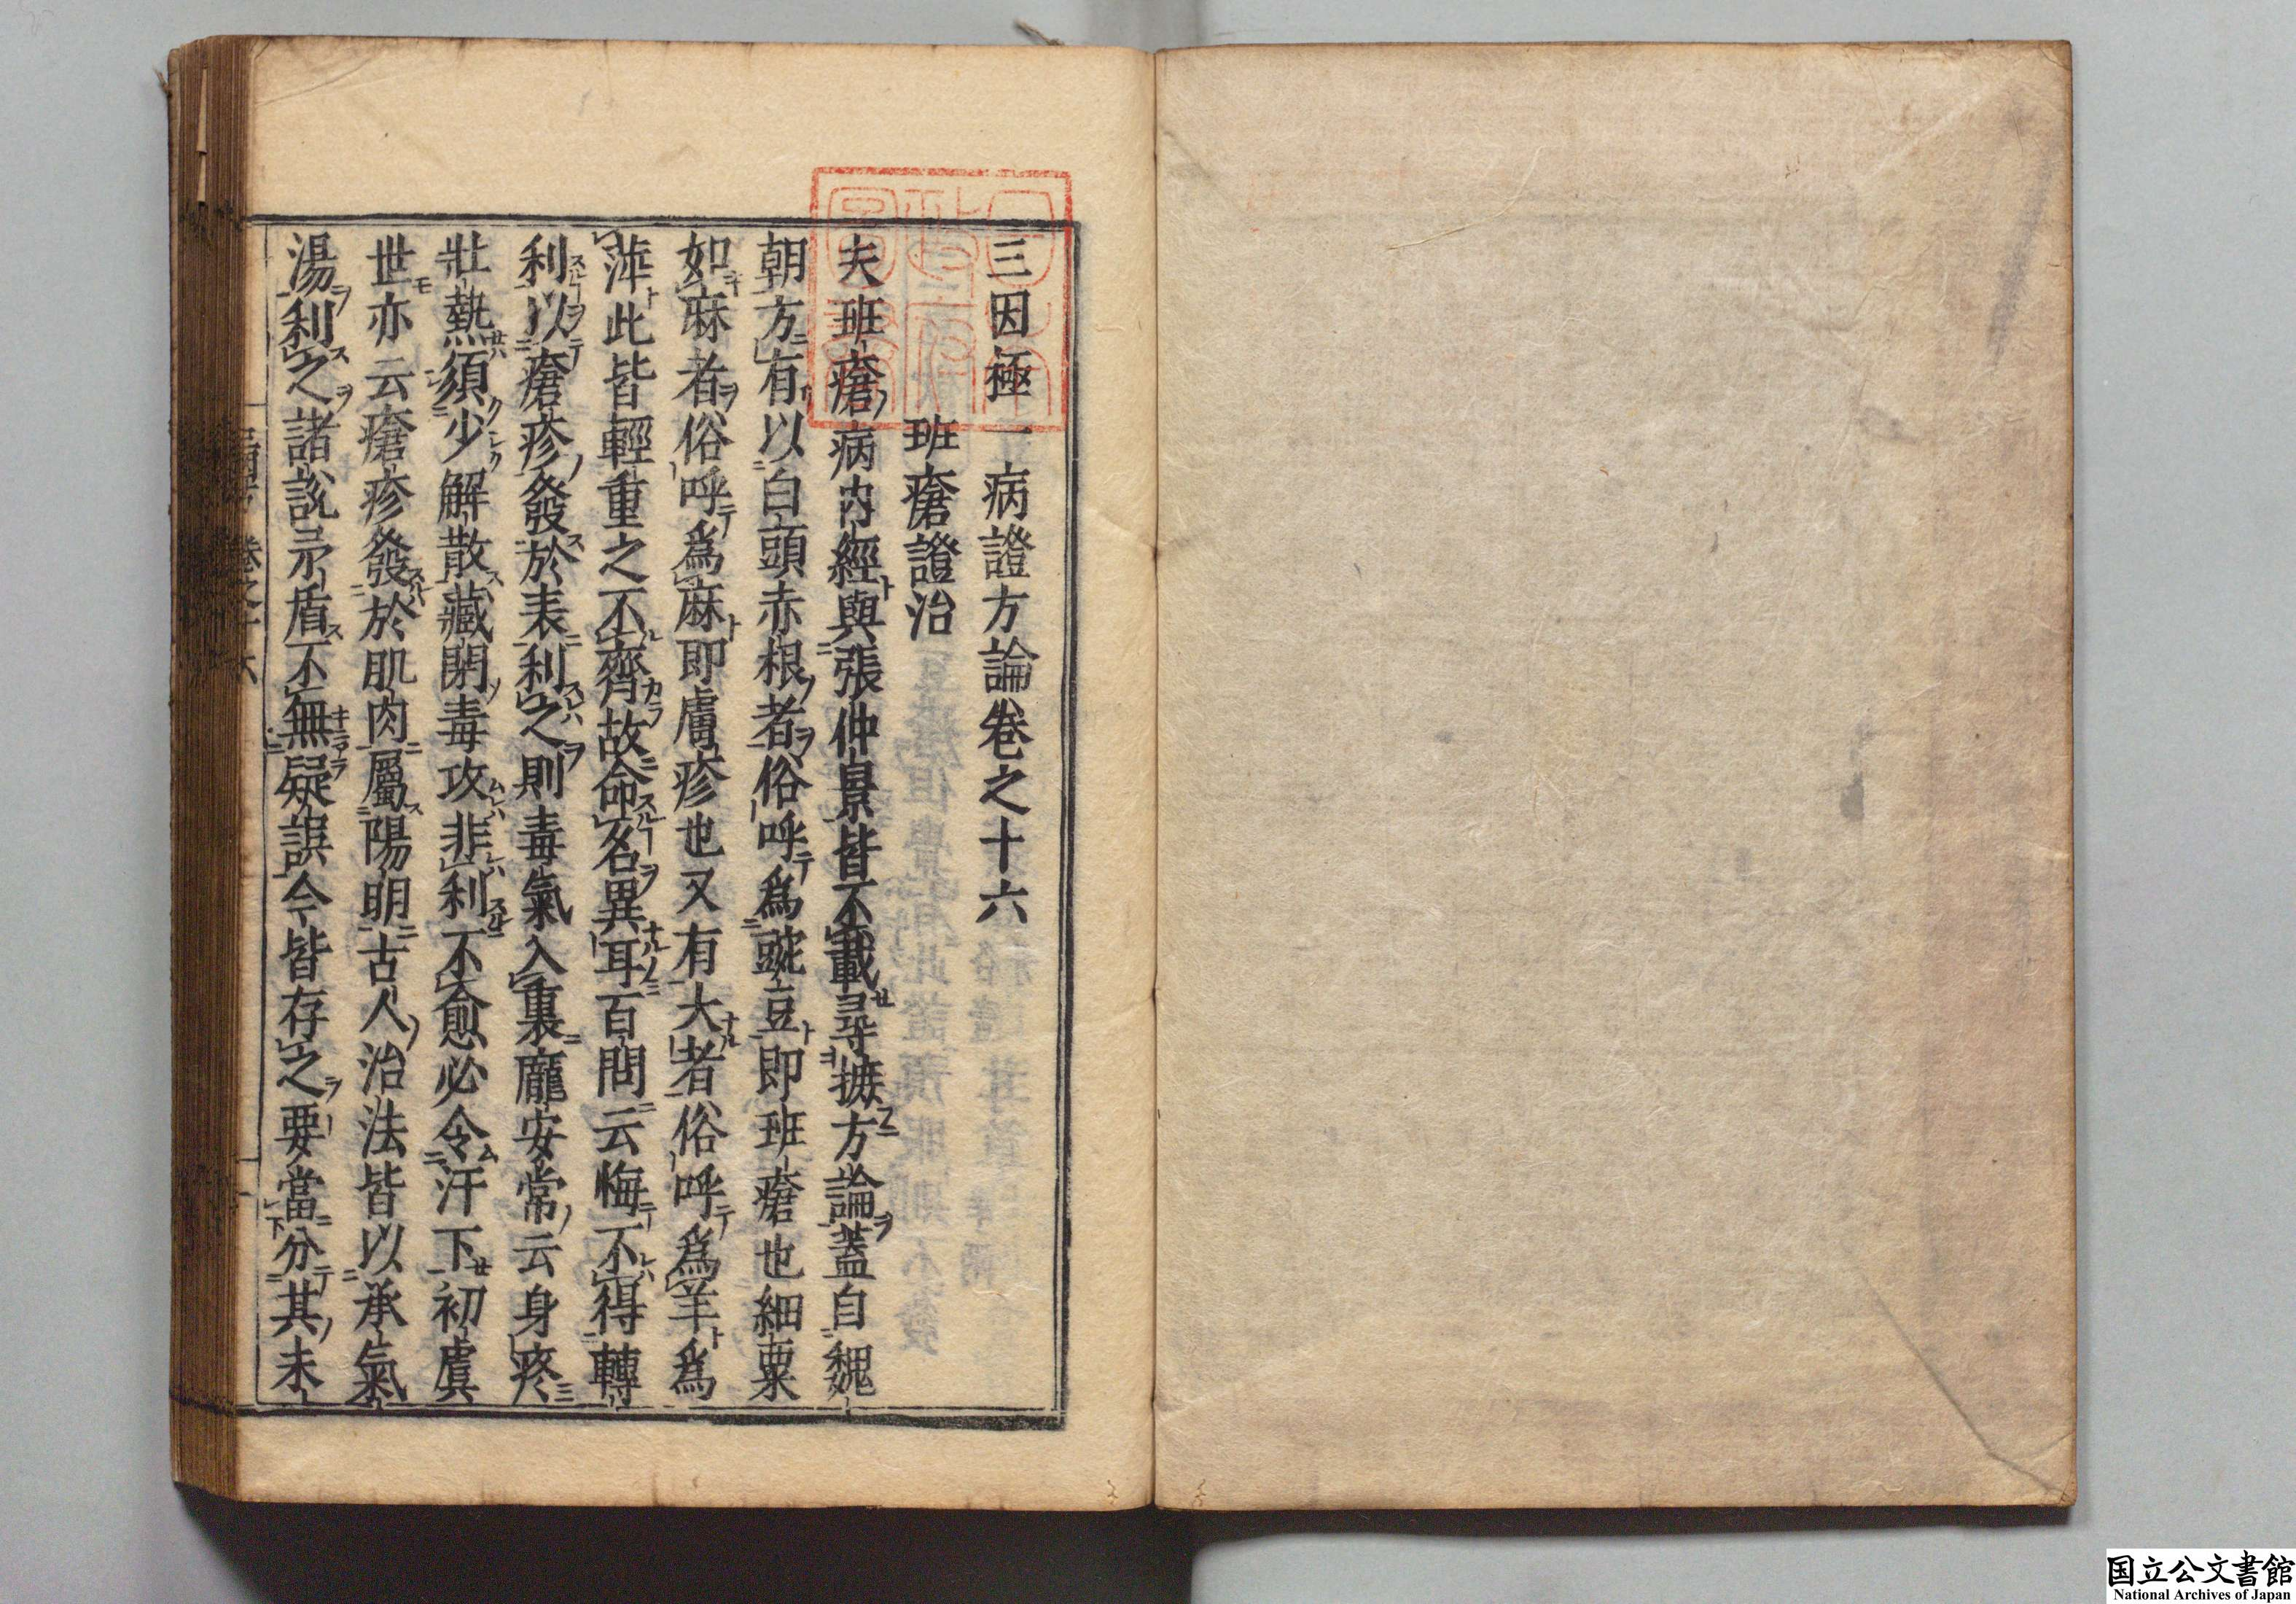 三因極一病證方論卷之十六
班瘡證治
夫班瘡病内經與張仲景皆不載尋摭方論蓋自魏
朝方有以白頭赤根者俗呼爲豌豆即班瘡也細粟
如麻者俗呼爲麻即膚疹也又有大者俗呼爲羊爲
萍此皆輕重之不齊故命名異耳百問云悔不得轉
利以瘡疹發於表利之則毒氣入裏龐安常云身疼
壯熱須少解散藏閉毒攻非利不愈必令汗下初虞
世亦云瘡疹發於肌肉屬陽明古人治法皆以承氣
湯利之諸說矛盾不無疑誤今皆存之要當分其未
国立公文書館
National Archives of Japan